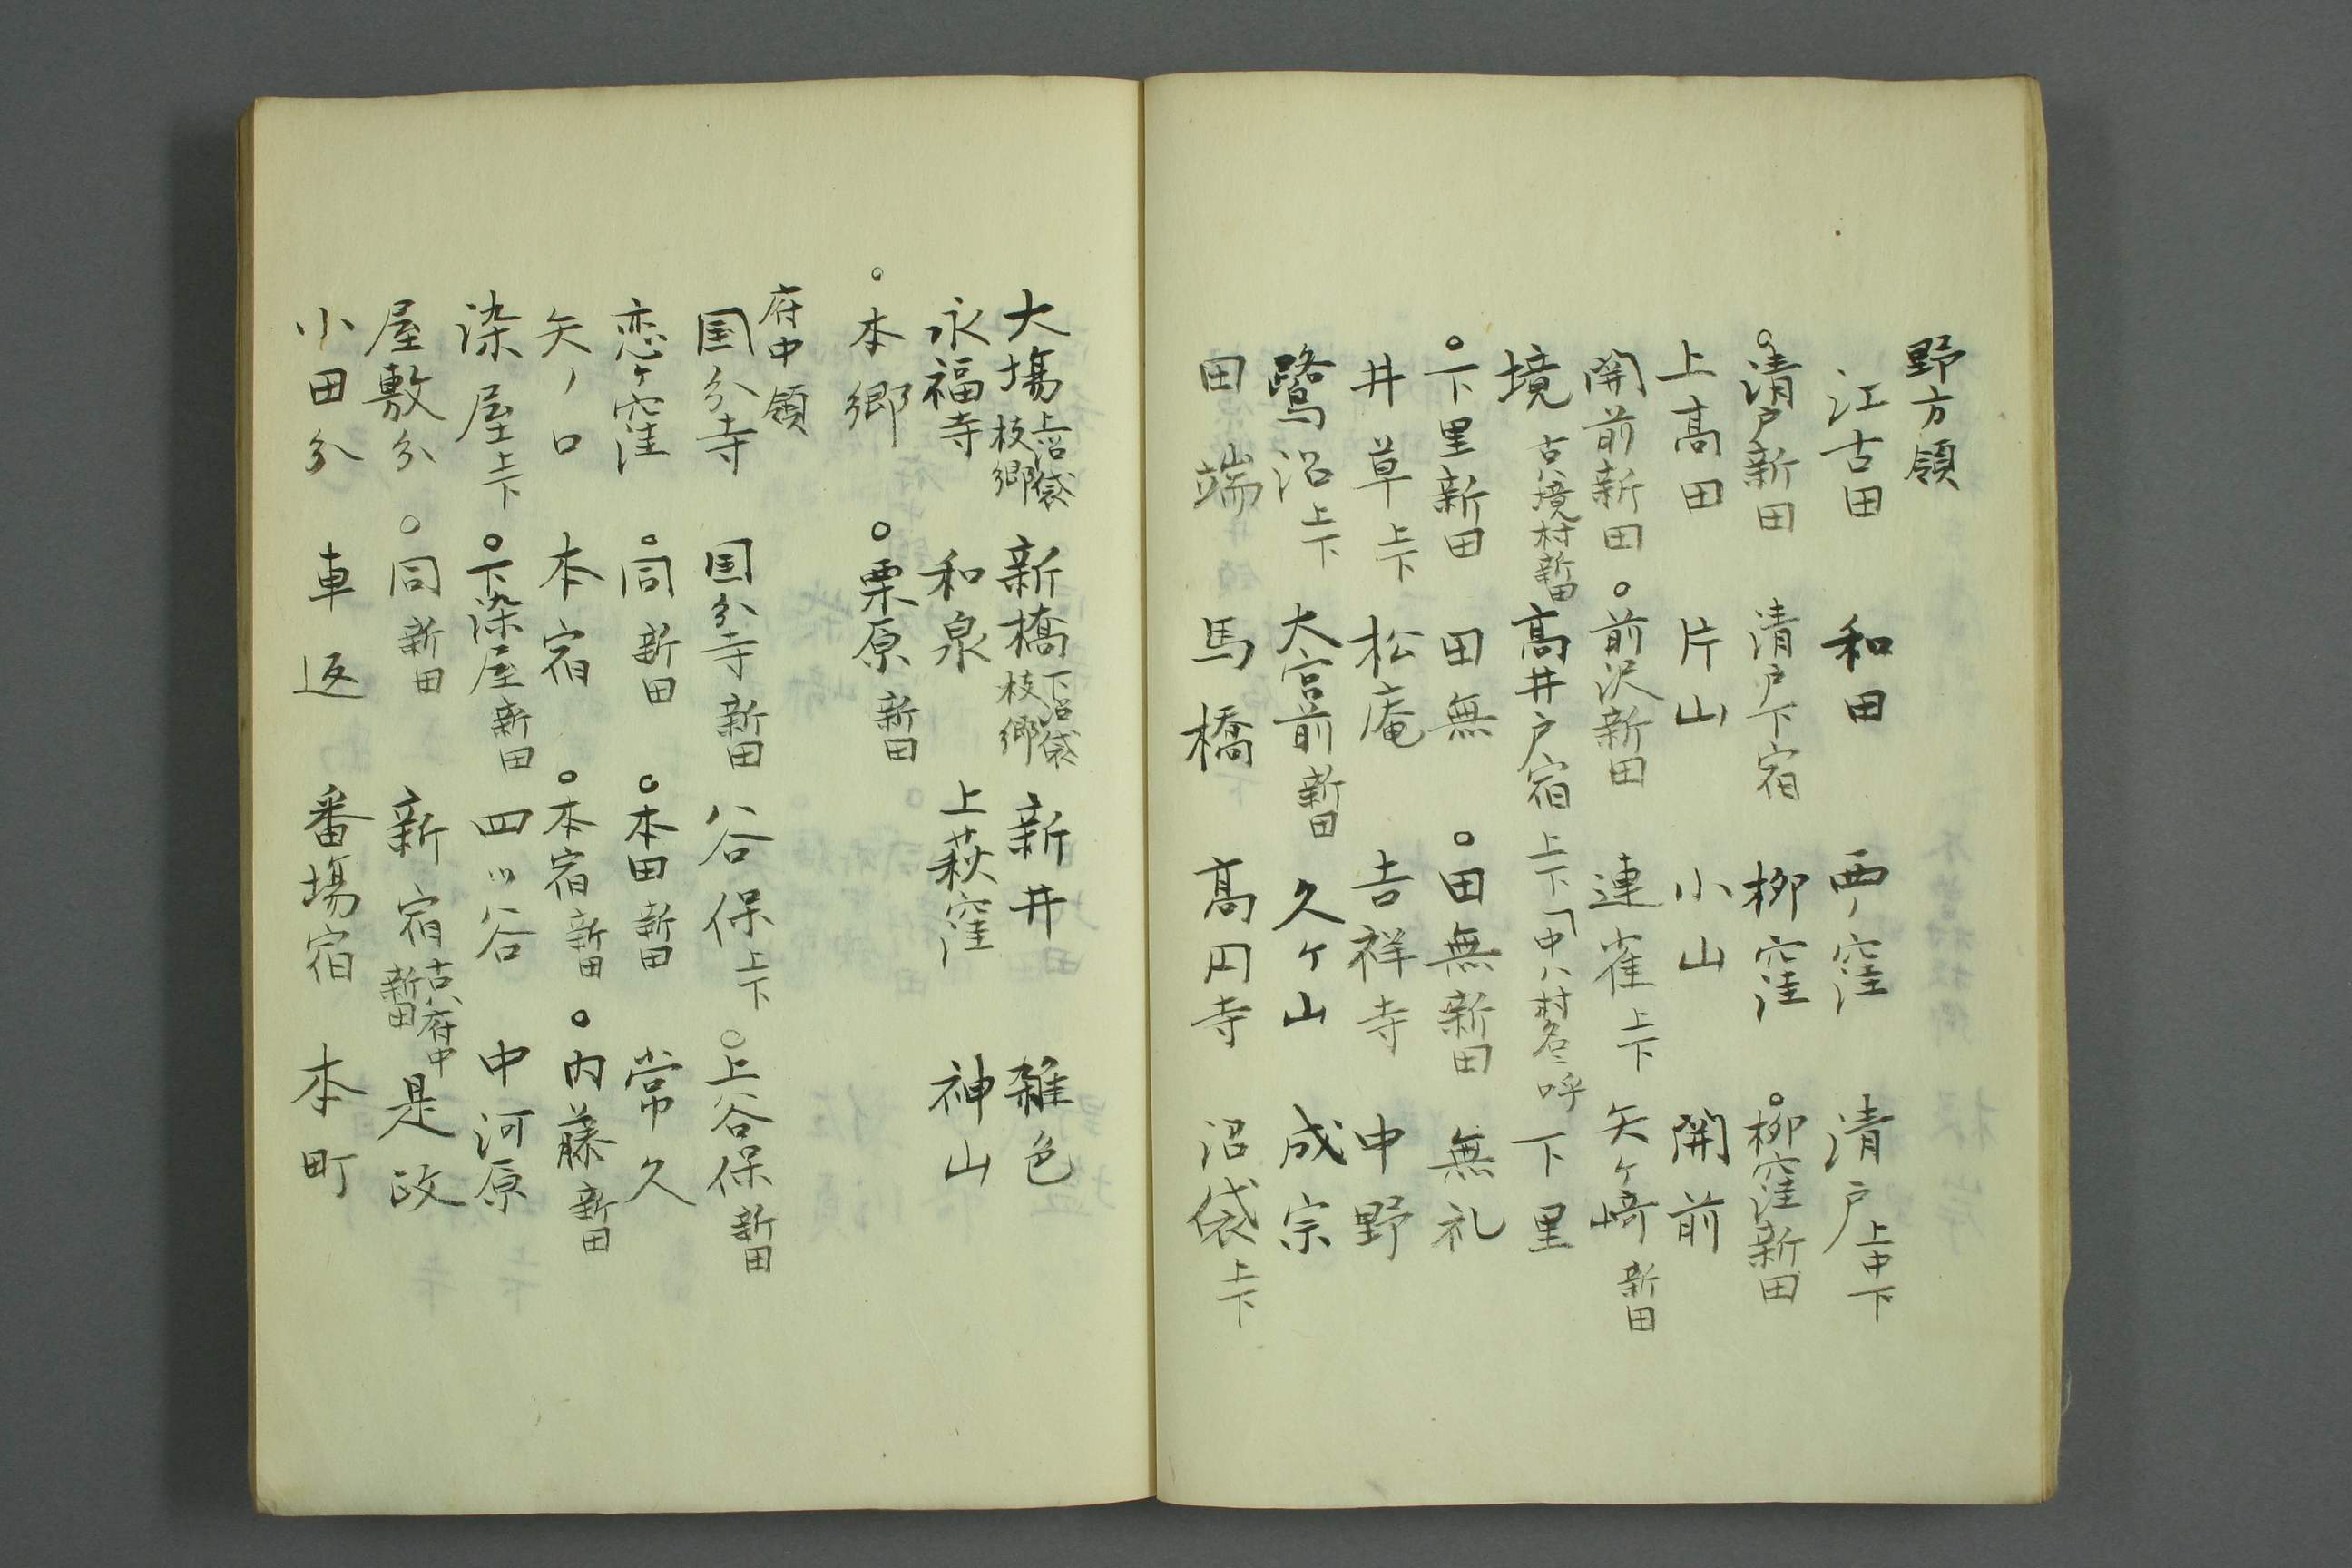 野方領
江古田　和田　西ノ窪　清戸上中下
○清戸新田　清戸下宿　柳窪　○柳窪新田
上高田　片山　小山　関前
関前新田　○前沢新田　連雀上下　矢ケ崎新田
境古ハ境村新田　高井戸宿上下「中ハ村名ニ呼　下里
○下里新田　田無　○田無新田　無礼
井草上下　松庵　吉祥寺　中野
鷺沼上下　大宮前新田　久ケ山　成宗
田端　馬橋　高円寺　沼袋上下
大場上沼袋枝郷　新橋下沼袋枝郷　新井　雑色
永福寺　和泉　上萩窪　神山
○本郷　○栗原新田
府中領
国分寺　国分寺新田　谷保上下　○上谷保新田
恋ケ窪　○同新田　○本田新田　常久
矢ノ口　本宿　○本宿新田　○内藤新田
染屋上下　○下染屋新田　四ツ谷　中河原
屋敷分　○同新田　新宿古ハ府中新田　是政
小田分　車返　番場宿　本町